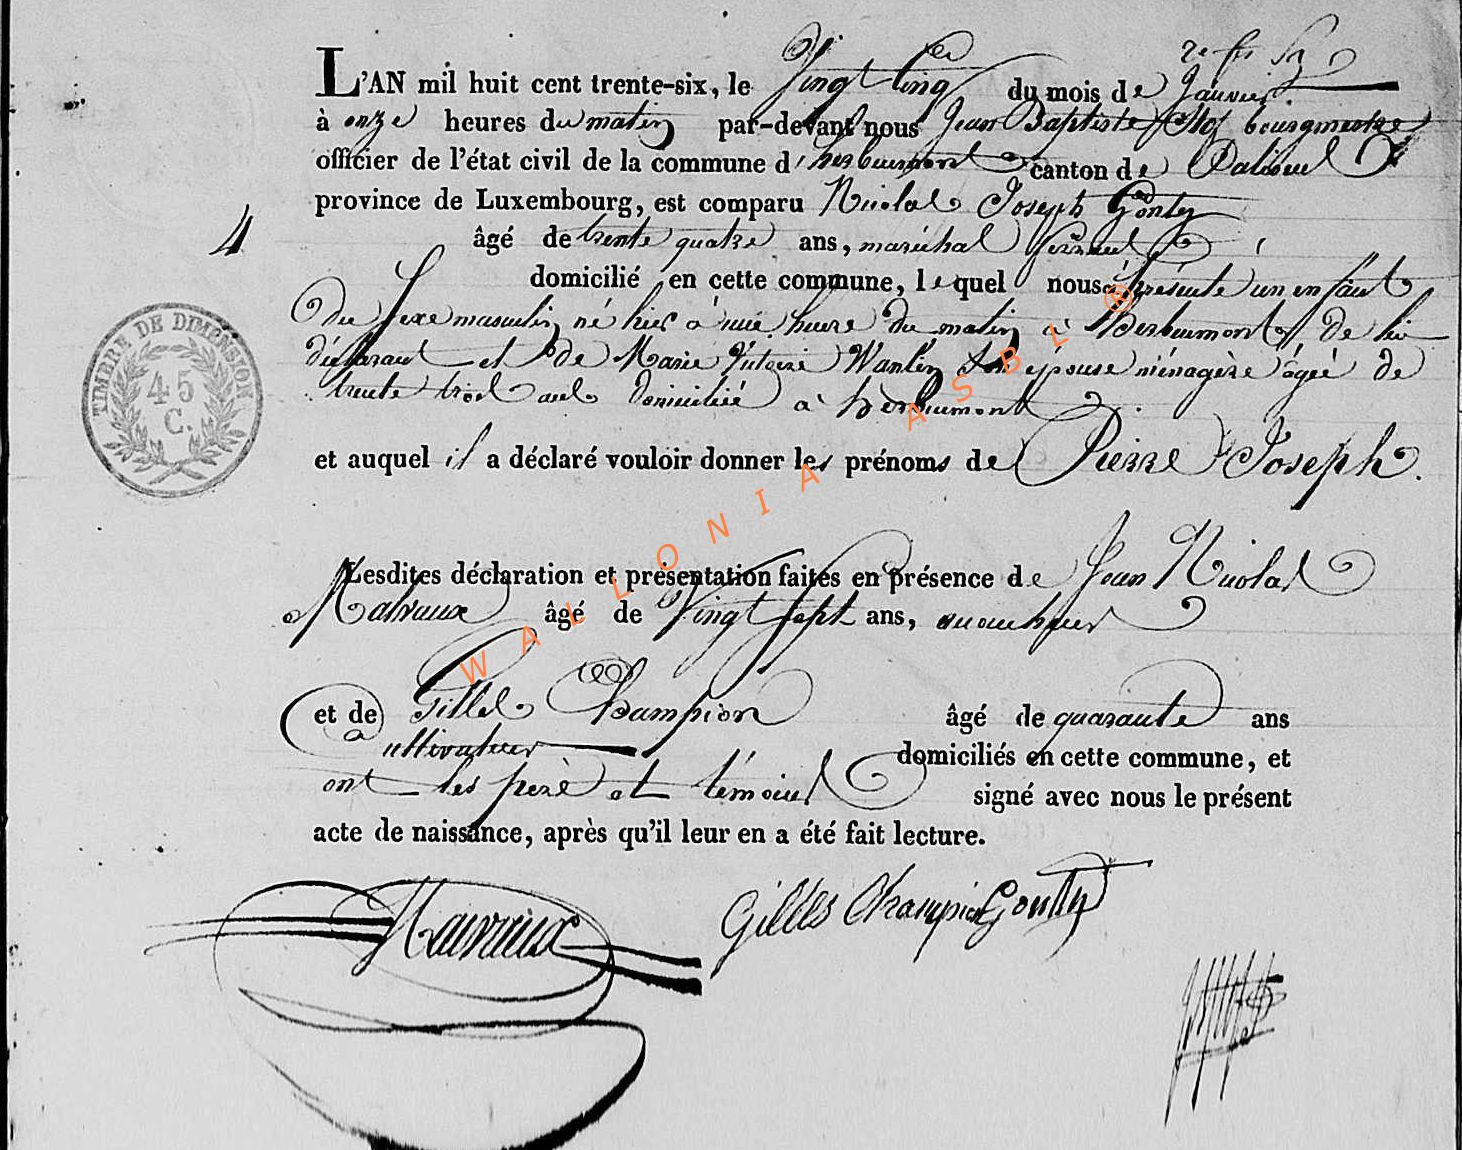 L'AN mil huit cent trente-six, le Vingt Cinq du mois de Janvier
à onze heures du matin par-devant nous Jean Baptiste bourgmestre
officier de l'état civil de la commune d'herbeumont canton de Paliseul
province de Luxembourg, est comparu Nicolas Joseph Gonty
4
âgé de trente quatre ans, maréchal ferrant
domicilié en cette commune, lequel nous a présenté un enfant
du sexe masculin né hier à une heure du matin à Herbeumont, de lui
déclarant et de Marie Victoire Wanlin son épouse ménagère agée de
trente trois ans domiciliée à herbeumont
TIMBRE DE DIMENSION
45
C.
et auquel il a déclaré vouloir donner les prénoms de Pierre Joseph.
Lesdites déclaration et présentation faites en présence de Jean Nicolas
Malvaux âgé de Vingt sept ans,
et de Gilles Champion âgé de quarante ans
cultivateur domiciliés en cette commune, et
ont les père et témoins signé avec nous le présent
acte de naissance, après qu'il leur en a été fait lecture.
Gilles Champion Gonty
WALLONIA ASBL ®